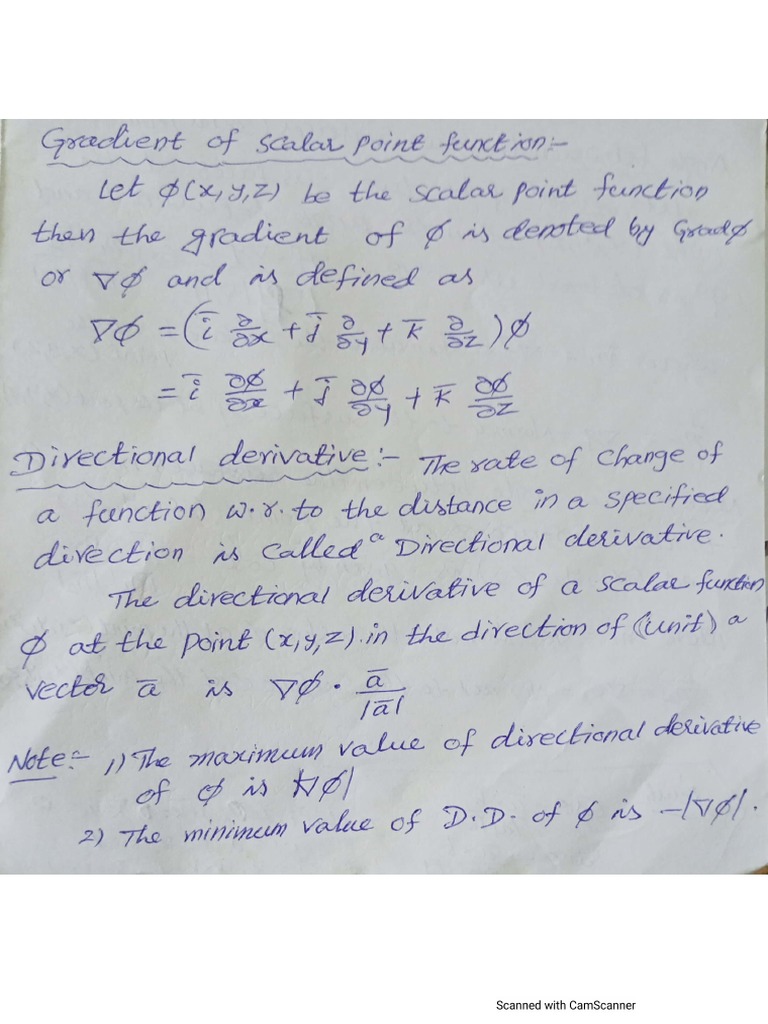 Gradient of scalar point function:-
Let φ(x,y,z) be the scalar point function
then the gradient of φ is denoted by Gradφ
or ∇φ and is defined as
∇φ = (i̅ ∂/∂x + j̅ ∂/∂y + k̅ ∂/∂z)φ
= i̅ ∂φ/∂x + j̅ ∂φ/∂y + k̅ ∂φ/∂z
Directional derivative:- The rate of change of
a function w.r.to the distance in a specified
direction is called a Directional derivative.
The directional derivative of a scalar function
φ at the point (x,y,z) in the direction of (unit) a
vector a̅ is ∇φ · a̅/|a̅|
Note:- 1) The maximum value of directional derivative
of φ is |∇φ|
2) The minimum value of D.D. of φ is -|∇φ|.
Scanned with CamScanner